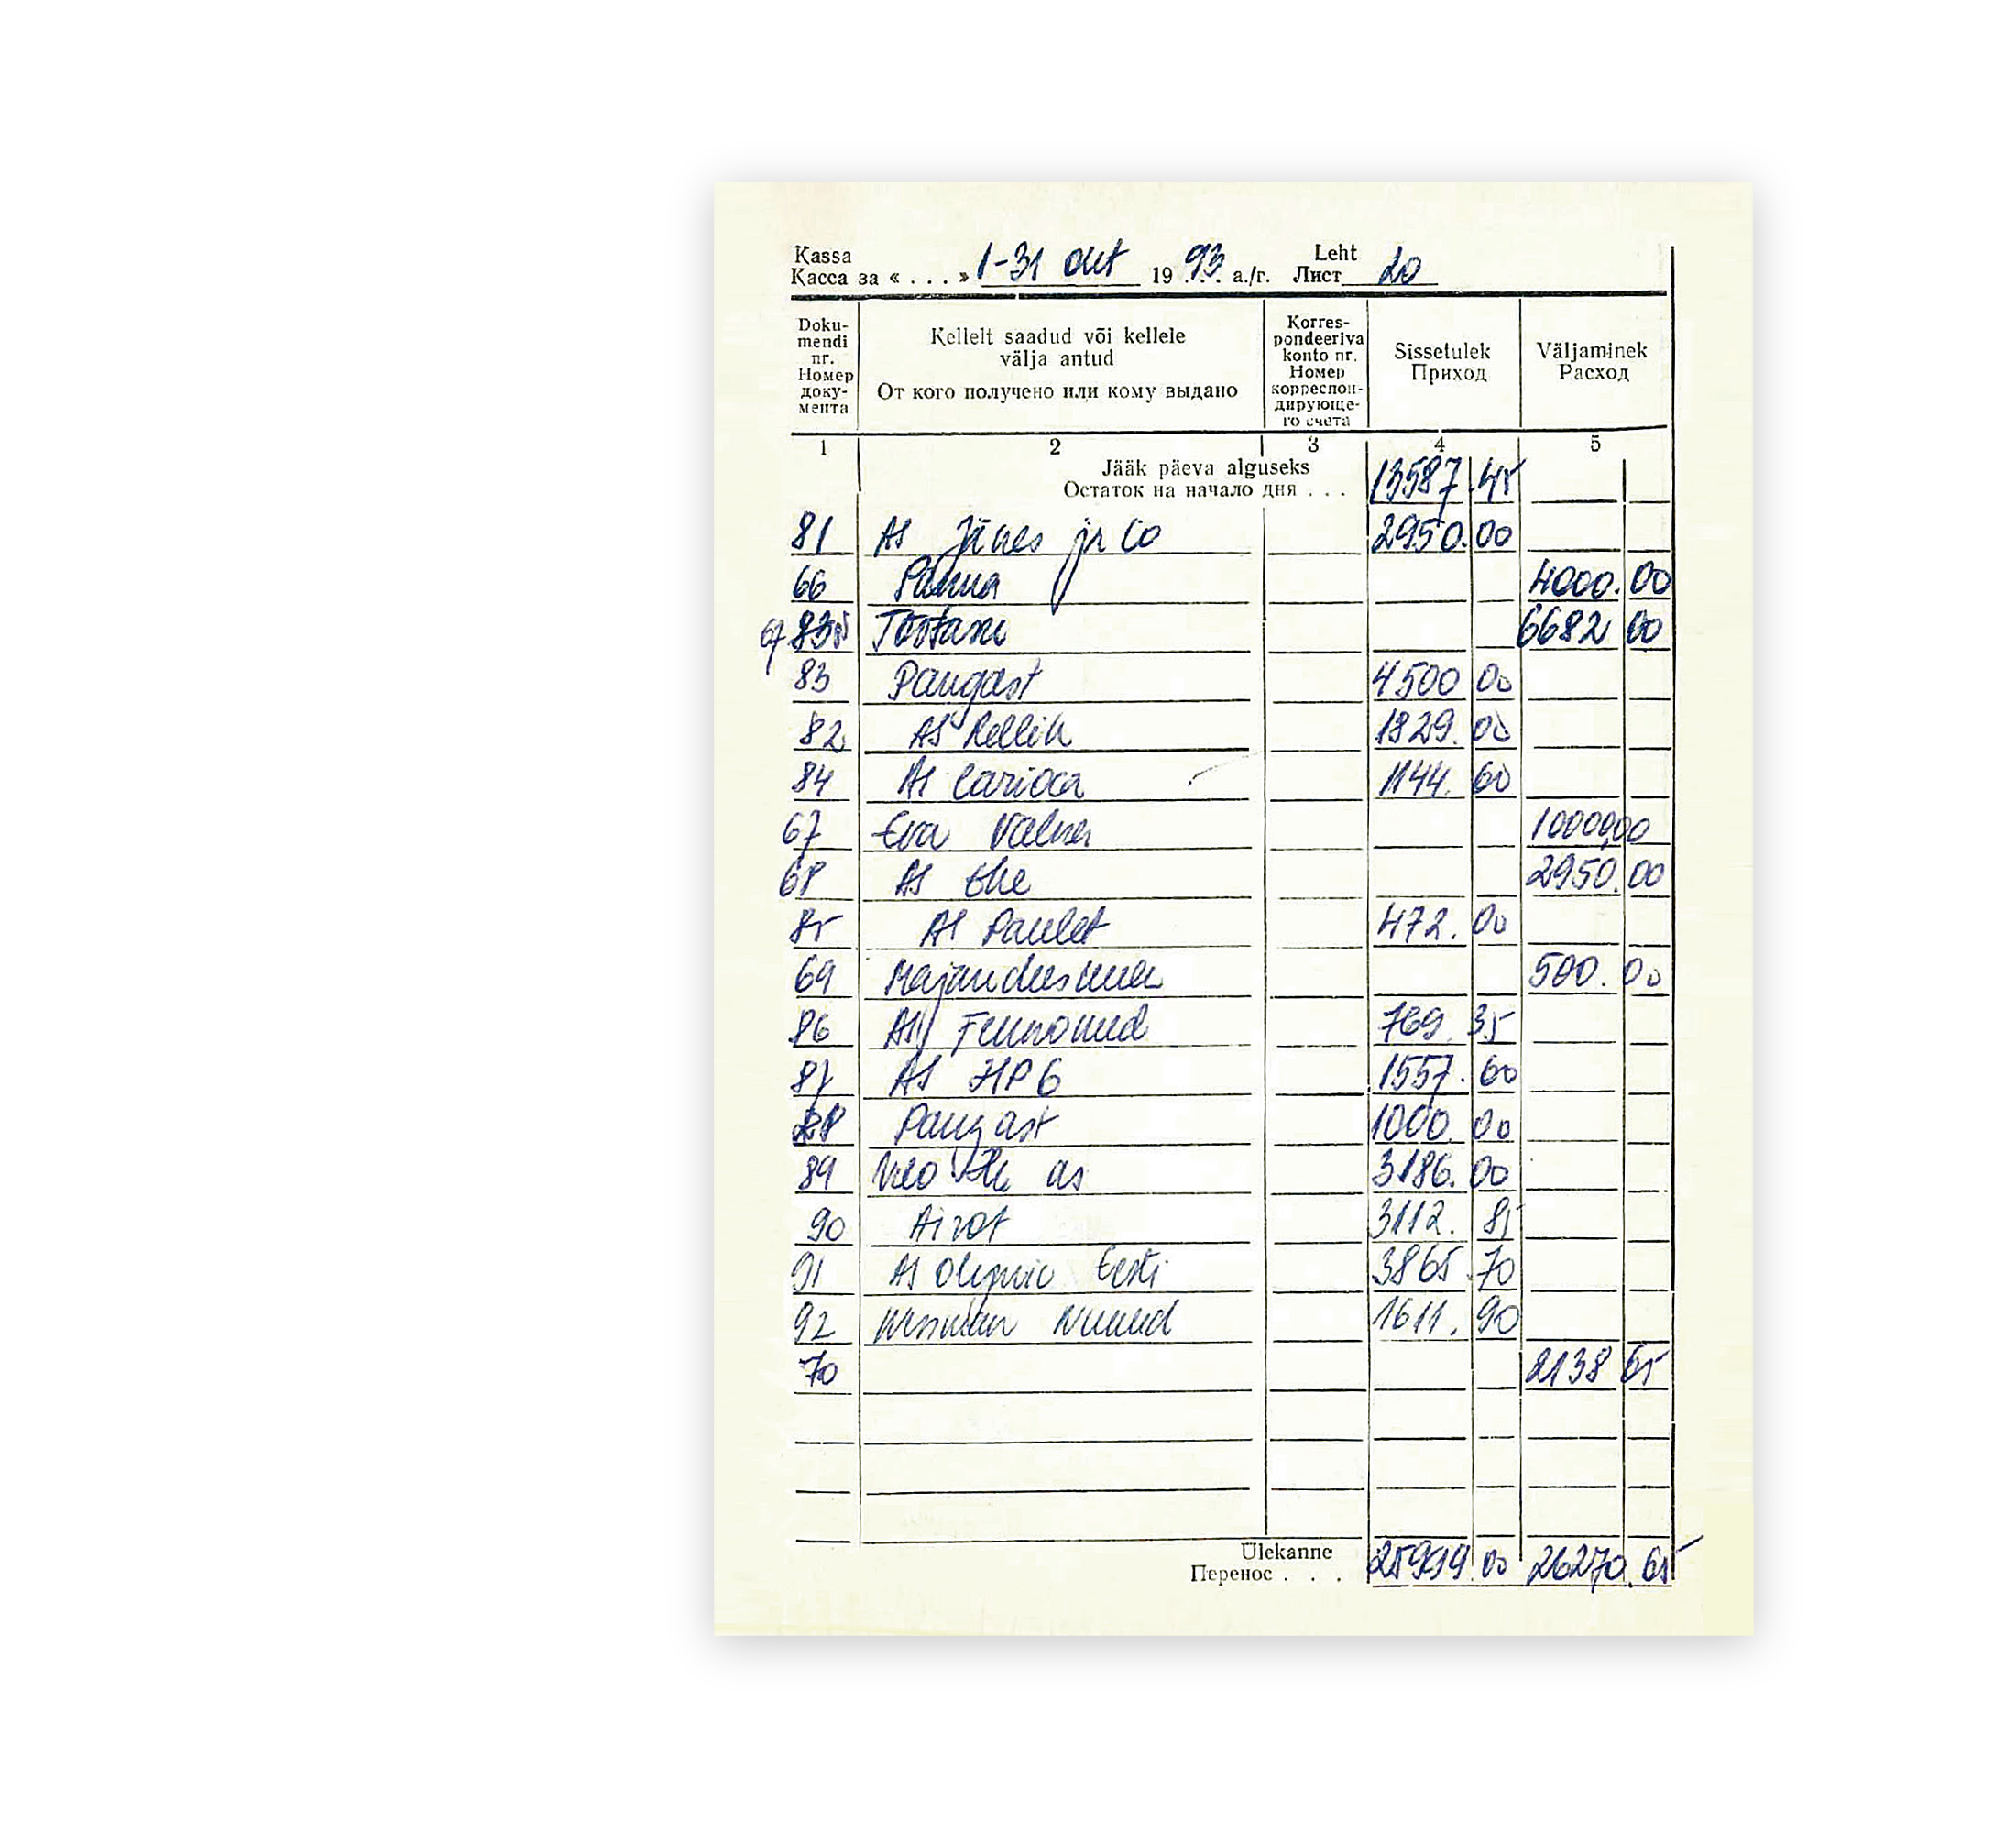 Kassa 1-31 okt 1993 a./г. Leht
Касса за « . . . » Лист 20
Doku-
mendi
nr.
Номер
доку-
мента
Kellelt saadud või kellele
välja antud
От кого получено или кому выдано
Korres-
pondeeriva
konto nr.
Номер
корреспон-
дирующе-
го счета
Sissetulek
Приход
Väljaminek
Расход
1 2 3 4 5
Jääk päeva alguseks
Остаток на начало дня . . . 13587.45
81 AS Jänes ja Co 2950.00
66 4000.00
67 6682 00
83 Pangast 4500 00
82 AS Rellik 1829.00
84 AS Carioca 1144.60
67 Eva 10000,00
68 AS 2950.00
85 AS Paulet 472.00
69 500.00
86 AS Fennomed 769.35
87 AS 1557.60
88 Pangast 1000.00
89 as 3186.00
90 Airot 3112.85
91 AS Olympic Eesti 3865.70
92 1611.90
70 2138 65
Ülekanne
Перенос . . . 25999.00 26270.65